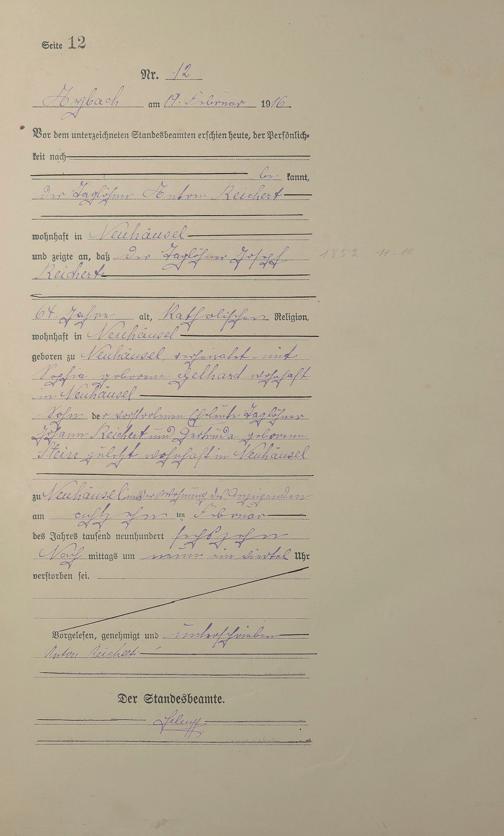 Seite 12
Nr. 12
Arzbach am 19. Februar 1916.
Vor dem unterzeichneten Standesbeamten erschien heute, der Persönlich-
keit nach
be kannt,
der Taglöhner Anton Reichert
wohnhaft in Neuhäusel
und zeigte an, daß der Taglöhner Joseph
Reichert
64 Jahre alt, Katholischer Religion,
wohnhaft in Neuhäusel
geboren zu Neuhäusel verheiratet mit
Sophia geborene Gelhard wohnhaft
in Neuhäusel
Sohn der verstorbenen Eheleute Taglöhner
Johann Reichert und Gertruda geborene
Stein zuletzt wohnhaft in Neuhäusel
zu Neuhäusel in der Wohnung des Anzeigenden
am achtzehn ten Februar
des Jahres tausend neunhundert sechszehn
Nach mittags um neun ein viertel Uhr
verstorben sei.
Vorgelesen, genehmigt und unterschrieben
Anton Reichert
Der Standesbeamte.